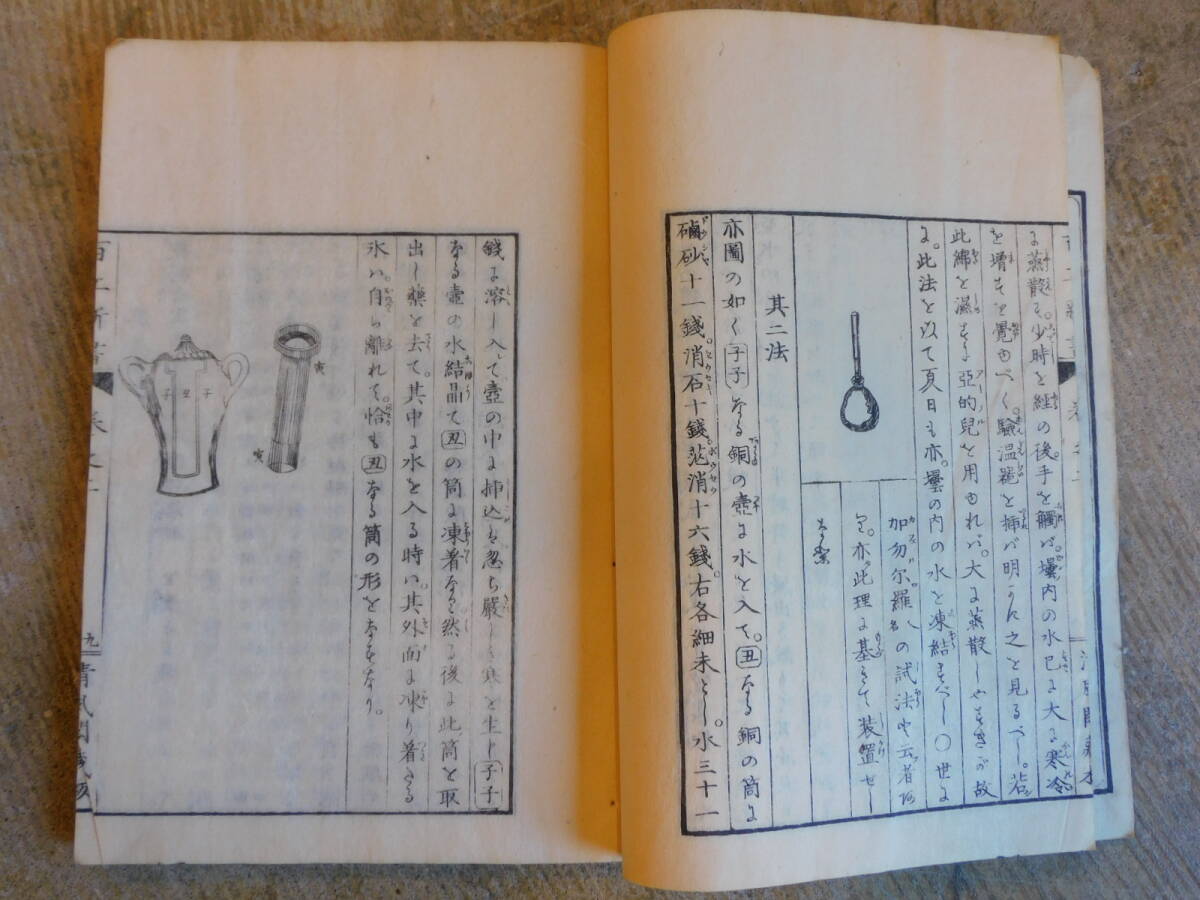 に蒸散す。少時を経の後。手を觸バ。壜内の水已に大る寒冷
を増すを覺ゆべく。驗温器を挿バ明かん之を見るべし。若
此綿を濕すに亞的兒を用ゆれバ。大に蒸散しやすきが故
に。此法を以て夏日も亦。壜の内の水を凍結すべし〇世に
加勿尔羅名人の試法と云者
亦此理に基きて装置せし
其二法
亦圖の如く子子なる銅の壺に水を入て。丑なる銅の筒に
磠砂十一錢。消石十錢。芒消十六錢。右各細末とし。水三十一
錢に溶し入て壺の中に挿込バ忽ち嚴しき寒を生じ子子
なる壺の水結晶て丑の筒に凍着なり然る後に此筒を取
出し藥を去て。其中に水を入る時ハ。其外面に凍り着たる
氷ハ。自ら離れて。恰も丑なる筒の形をなすなり。
寅
寅
子 丑 子
九